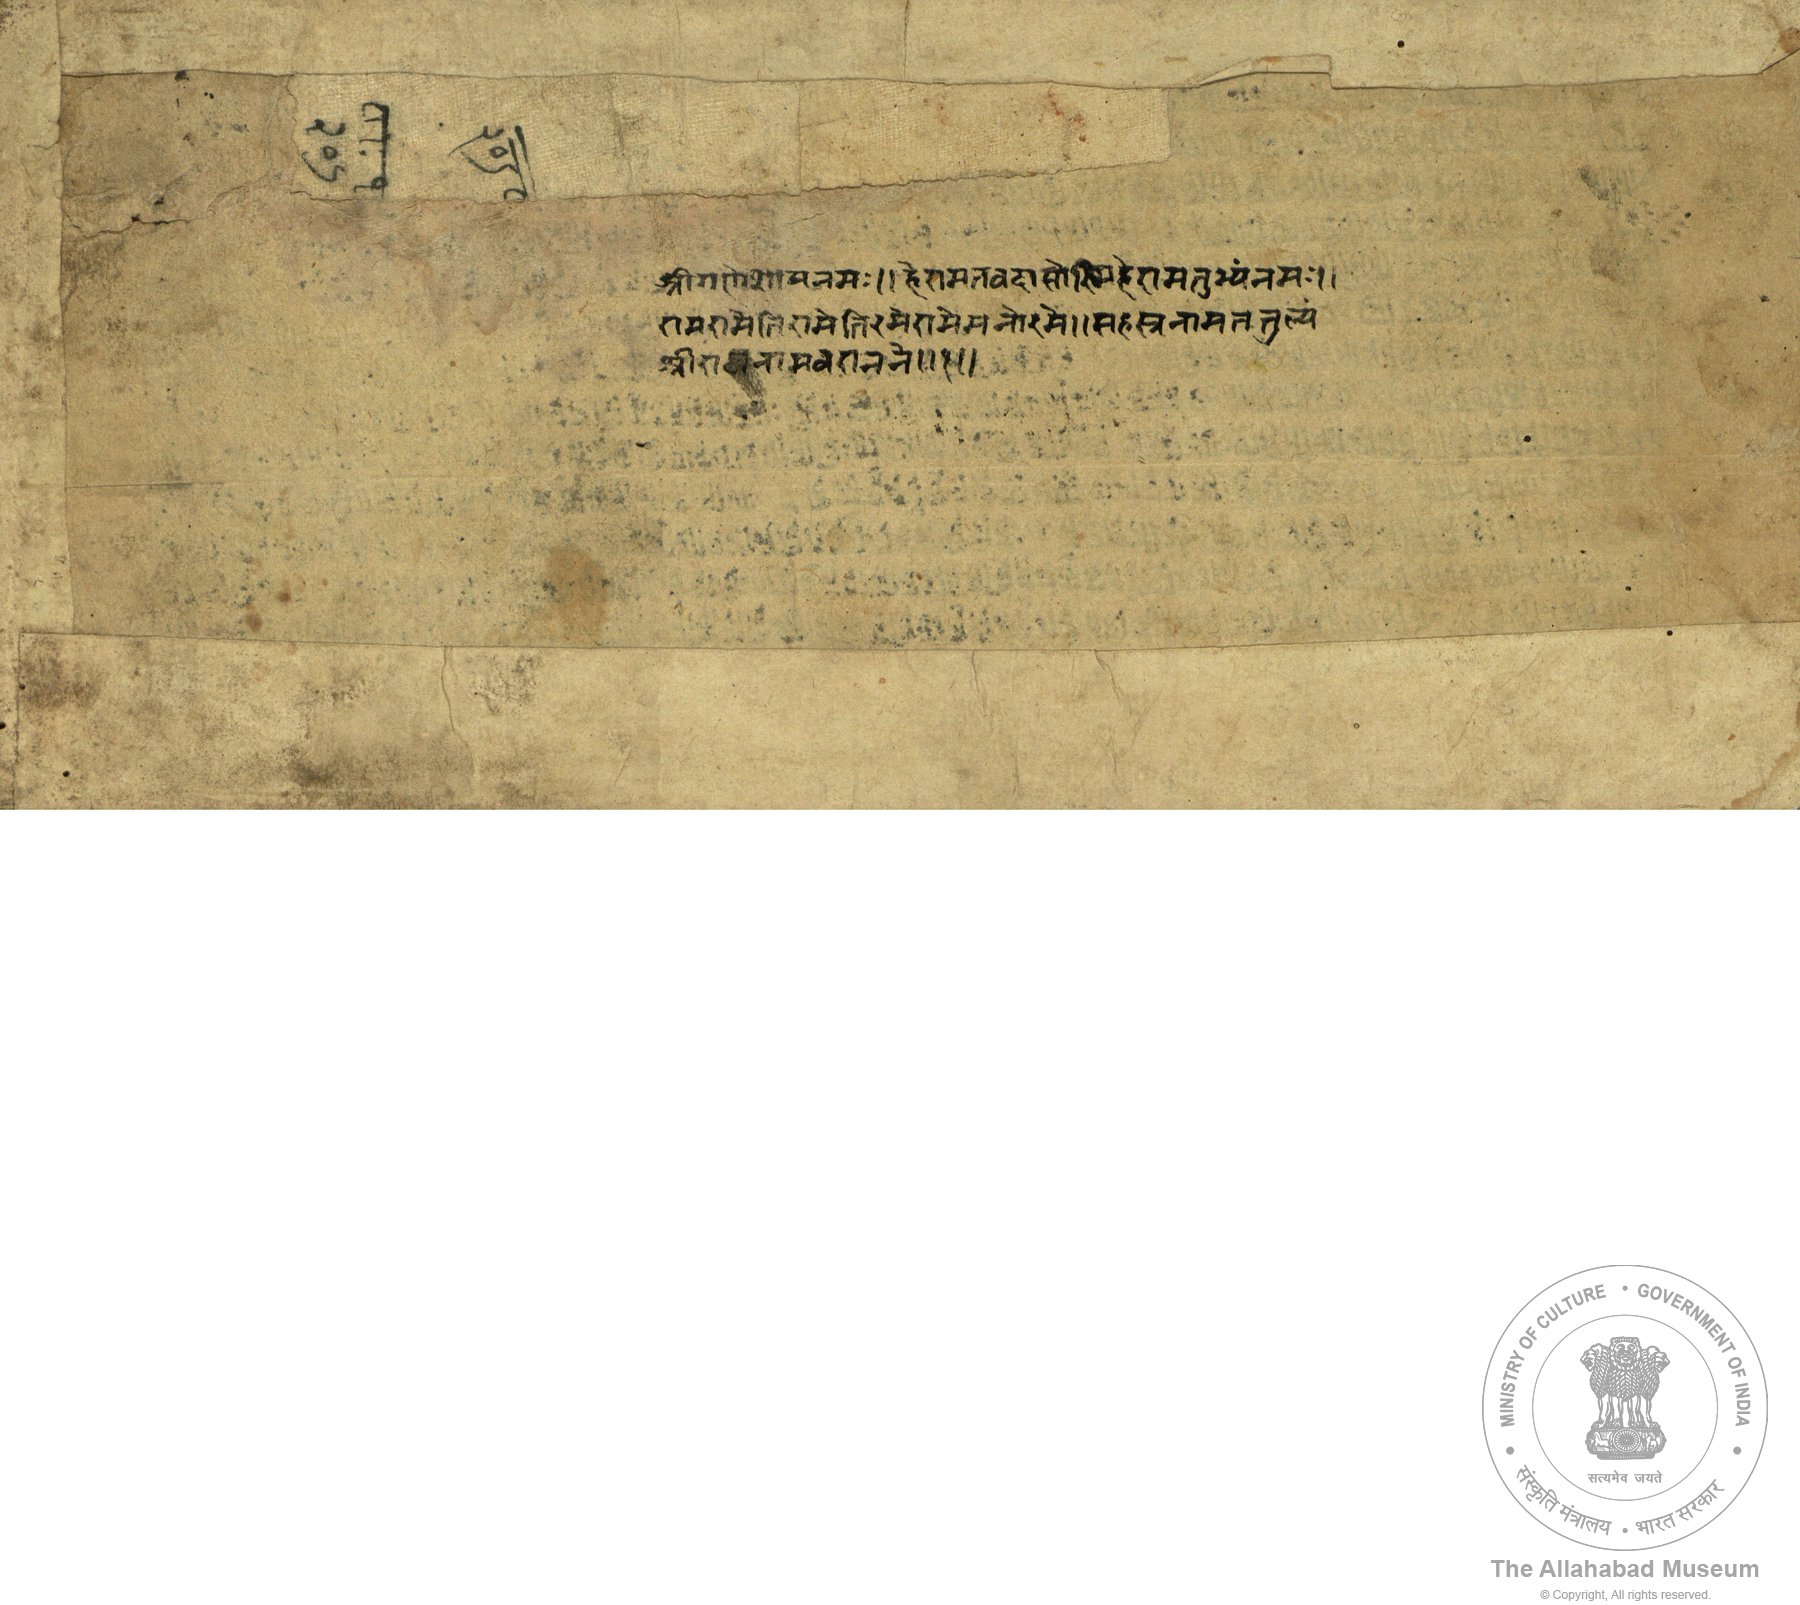 श्रीगणेशायनमः।। हेरामतवदासोस्मिहेरामतुभ्यंनमः।।
रामरामेतिरामेतिरमेरामेमनोरमे।।सहस्त्रनामततुल्यं
श्रीरामनामवरानने।।१।।
MINISTRY OF CULTURE • GOVERNMENT OF INDIA
सत्यमेव जयते
संस्कृति मंत्रालय • भारत सरकार
The Allahabad Museum
© Copyright, All rights reserved.